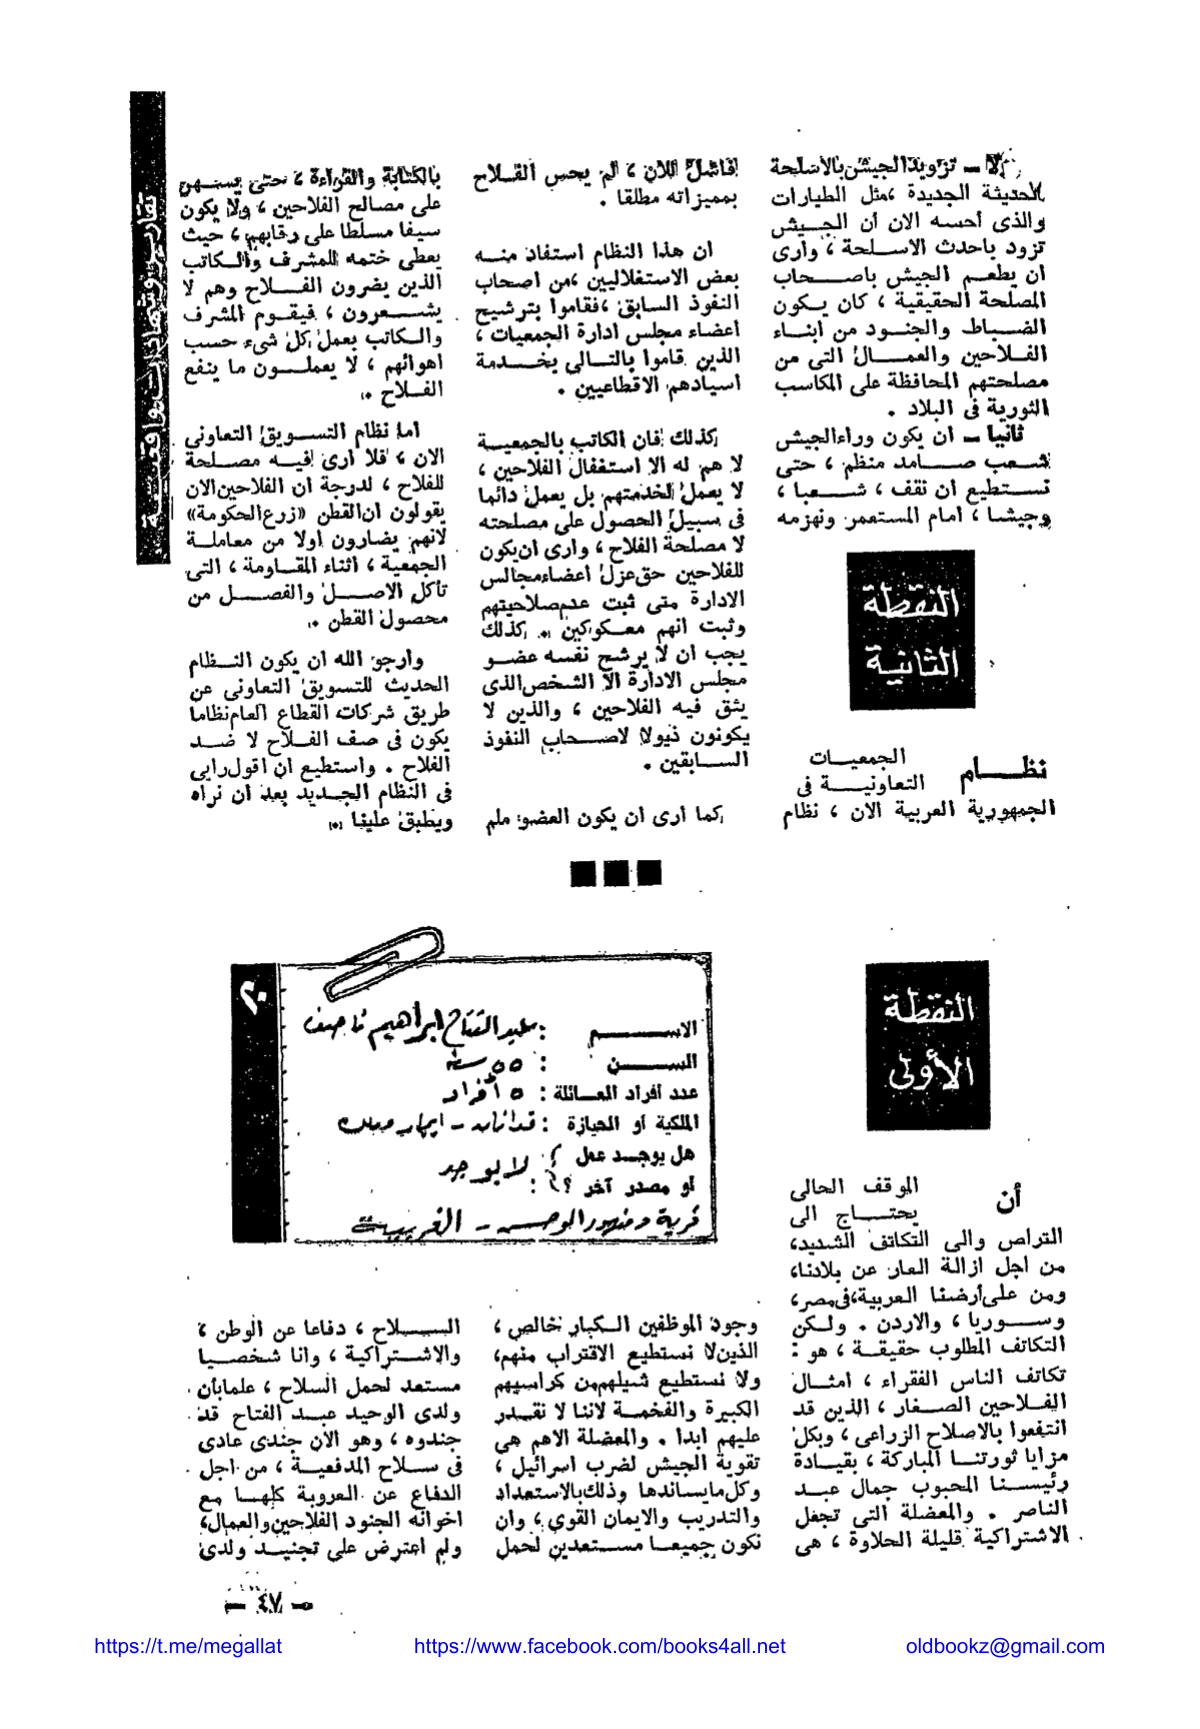 تقارير وشهادات واقعية
أولا — تزويد الجيش بالأسلحة
الحديثة الجديدة ، مثل الطيارات
والذى أحسه الان أن الجيش
تزود بأحدث الاسلحة ، وأرى
ان يطعم الجيش باصحاب
المصلحة الحقيقية ، كان يكون
الضباط والجنود من ابناء
الفلاحين والعمال التى من
مصلحتهم المحافظة على المكاسب
الثورية فى البلاد .
ثانيا — ان يكون وراء الجيش
شعب صامد منظم ، حتى
نستطيع أن نقف ، شعبا ،
وجيشا ، أمام المستعمر ونهزمه
النقطة
الثانية
نظام الجمعيات
التعاونية فى
الجمهورية العربية الان ، نظام
فاشل للان ، لم يحس الفلاح
بمميزاته مطلقا .
ان هذا النظام استفاد منه
بعض الاستغلاليين ، من اصحاب
النفوذ السابق ، فقاموا بترشيح
اعضاء مجلس ادارة الجمعيات ،
الذين قاموا بالتالى بخدمة
اسيادهم الاقطاعيين .
كذلك فان الكاتب بالجمعية
لا هم له الا استغفال الفلاحين ،
لا يعمل لخدمتهم بل يعمل دائما
فى سبيل الحصول على مصلحته
لا مصلحة الفلاح ، وارى ان يكون
للفلاحين حق عزل اعضاء مجالس
الادارة متى ثبت عدم صلاحيتهم
وثبت انهم معكوكين .. كذلك
يجب ان لا يرشح نفسه عضو
مجلس الادارة الا الشخص الذى
يثق فيه الفلاحين ، والذين لا
يكونون ذيولا لاصحاب النفوذ
السابقين .
كما أرى ان يكون العضو ملم
بالكتابة والقراءة ، حتى يسهر
على مصالح الفلاحين ، ولا يكون
سيفا مسلطا على رقابهم ، حيث
يعطى ختمه للمشرف والكاتب
الذين يضرون الفلاح وهم لا
يشعرون ، فيقوم المشرف
والكاتب بعمل كل شىء حسب
اهوائهم ، لا يعملون ما ينفع
الفلاح ..
اما نظام التسويق التعاونى
الان ، فلا ارى فيه مصلحة
للفلاح ، لدرجة ان الفلاحين الان
يقولون ان القطن «زرع الحكومة»
لانهم يضارون اولا من معاملة
الجمعية ، اثناء المقاومة ، التى
تأكل الاصل والفصل من
محصول القطن ..
وارجو الله ان يكون النظام
الحديث للتسويق التعاونى عن
طريق شركات القطاع العام نظاما
يكون فى صف الفلاح لا ضد
الفلاح . واستطيع ان اقول رايى
فى النظام الجديد بعد ان نراه
ويطبق علينا
النقطة
الأولى
٢٠
الاسم : عبدالفتاح ابراهيم ناصف
السن : ٥٥ سنة
عدد أفراد العائلة : ٥ أفراد
الملكية أو الحيازة : فدانان - إيجار
هل يوجد عمل
أو مصدر آخر ؟ : لا يوجد
قرية دمنهور الوحش - الغربية
أن الموقف الحالى
يحتاج الى
التراص والى التكاتف الشديد،
من اجل ازالة العار عن بلادنا،
ومن على أرضنا العربية، فى مصر،
وسوريا ، والاردن . ولكن
التكاتف المطلوب حقيقة ، هو :
تكاتف الناس الفقراء ، امثال
الفلاحين الصغار ، الذين قد
انتفعوا بالاصلاح الزراعى ، وبكل
مزايا ثورتنا المباركة ، بقيادة
رئيسنا المحبوب جمال عبد
الناصر . والمعضلة التى تجعل
الاشتراكية قليلة الحلاوة ، هى
وجود الموظفين الكبار خالص ،
الذين لا نستطيع الاقتراب منهم،
ولا نستطيع شيلهم من كراسيهم
الكبيرة والفخمة لاننا لا نقدر
عليهم ابدا . والمعضلة الاهم هى
تقوية الجيش لضرب اسرائيل ،
وكل ما يساندها وذلك بالاستعداد
والتدريب والايمان القوى ، وان
نكون جميعا مستعدين لحمل
السلاح ، دفاعا عن الوطن ،
والاشتراكية ، وانا شخصيا
مستعد لحمل السلاح ، علما بأن
ولدى الوحيد عبد الفتاح قد
جندوه ، وهو الآن جندى عادى
فى سلاح المدفعية ، من اجل
الدفاع عن العروبة كلها مع
اخوانه الجنود الفلاحين والعمال،
ولم اعترض على تجنيد ولدى
— ٤٧ —
https://t.me/megallat https://www.facebook.com/books4all.net oldbookz@gmail.com